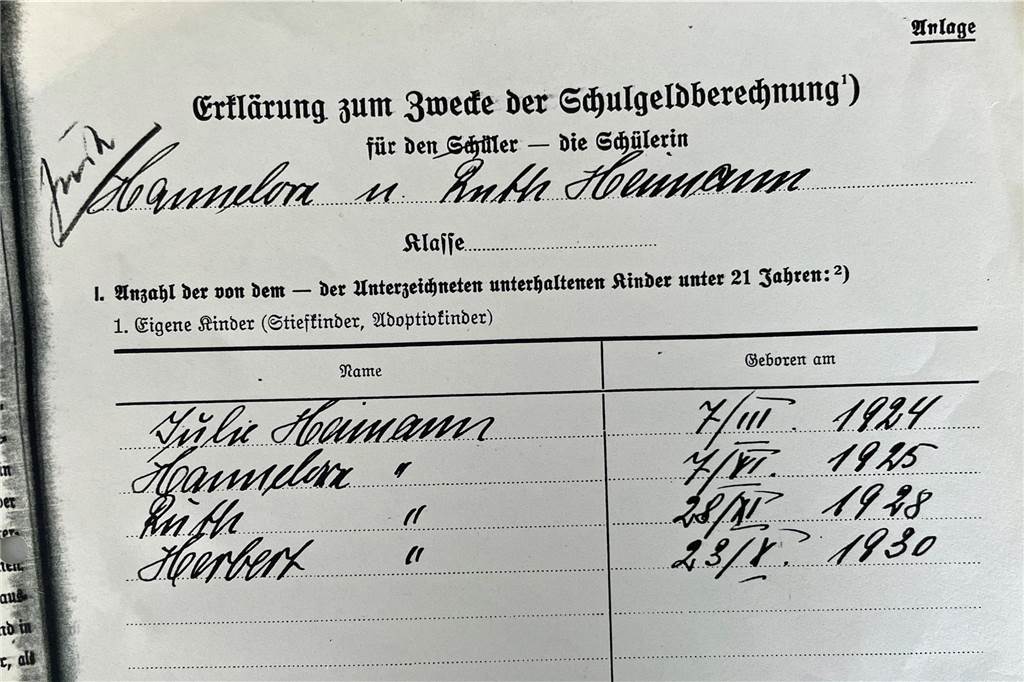 Anlage
Erklärung zum Zwecke der Schulgeldberechnung¹)
für den Schüler — die Schülerin
Hannelore u. Ruth Heimann
Klasse
I. Anzahl der von dem — der Unterzeichneten unterhaltenen Kinder unter 21 Jahren: ²)
1. Eigene Kinder (Stiefkinder, Adoptivkinder)
Name Geboren am
Julie Heimann 7/III. 1924
Hannelore " 7/XI. 1925
Ruth " 28/XI 1928
Herbert " 23/X. 1930
aus-
nd in
r, als